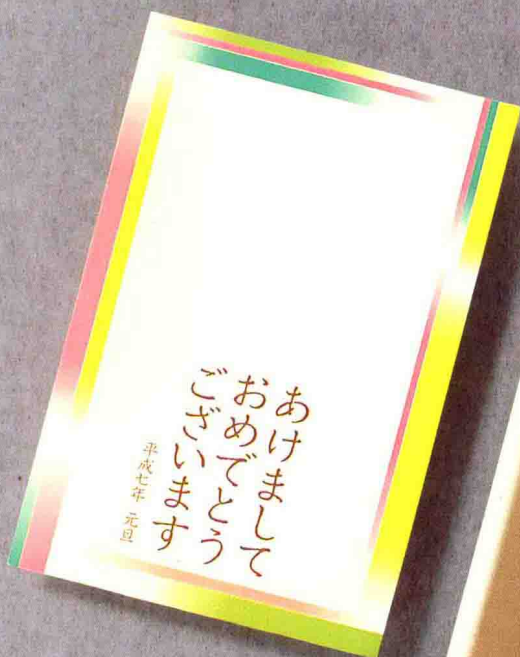 あけまして
おめでとう
ございます
平成七年 元旦